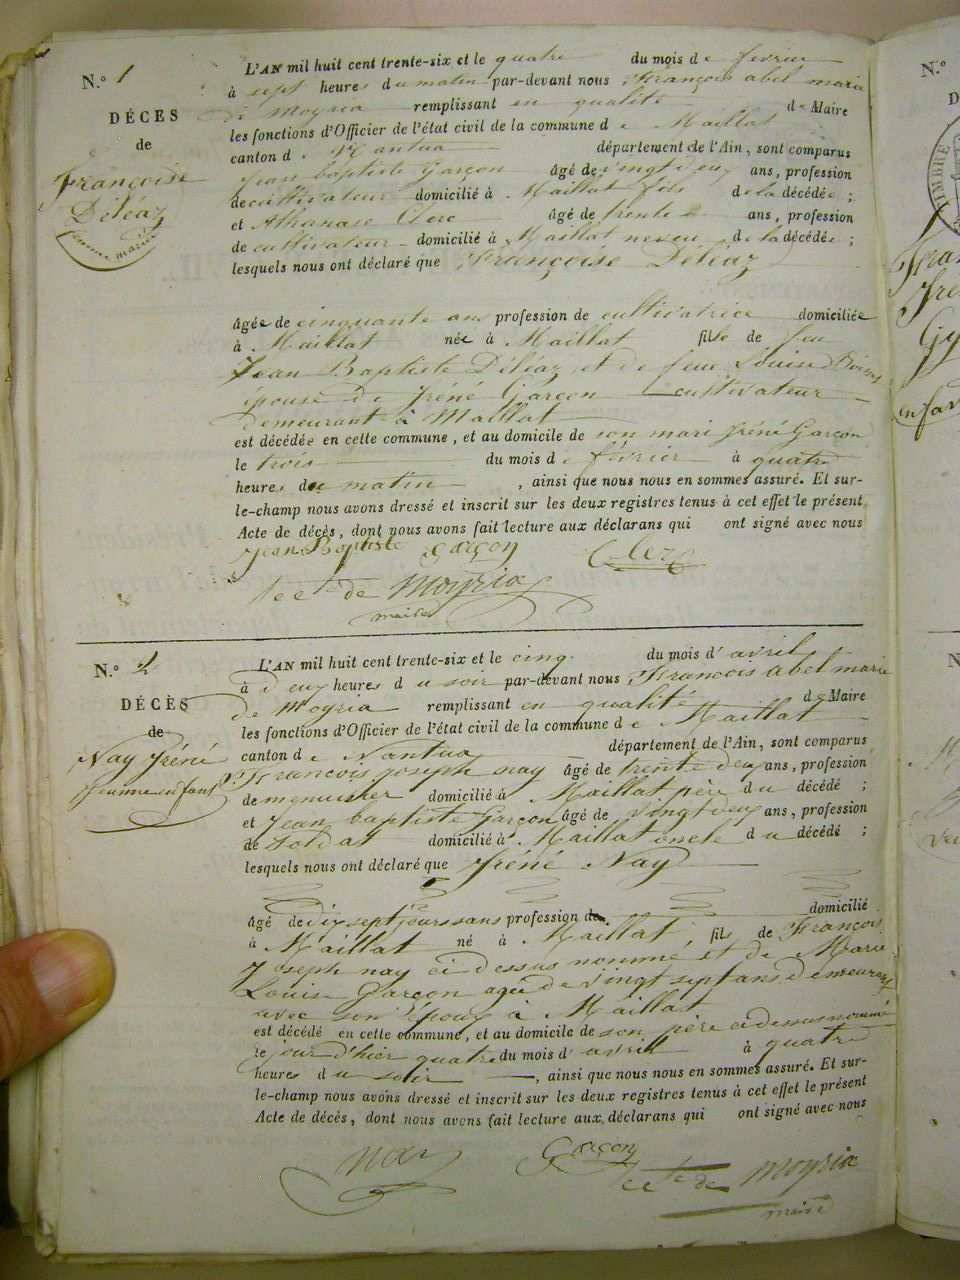 N.° 1
DÉCES
de
Françoise
Déléaz
femme mariée
L'AN mil huit cent trente-six et le quatre du mois de février
à sept heures du matin par-devant nous François abel marie
de Moyria remplissant en qualité de Maire
les fonctions d'Officier de l'état civil de la commune de Maillat
canton de Nantua département de l'Ain, sont comparus
Jean baptiste Garçon âgé de vingt deux ans, profession
de cultivateur domicilié à Maillat fils de la décédée ;
et Athanase Clerc âgé de trente ans, profession
de cultivateur domicilié à Maillat neveu de la décédée ;
lesquels nous ont déclaré que Françoise Déléaz
âgée de cinquante ans profession de cultivatrice domiciliée
à Maillat née à Maillat fille de feu
Jean Baptiste Déléaz et de feue Louise
épouse de Iréné Garçon cultivateur
demeurant à Maillat
est décédée en cette commune, et au domicile de son mari Iréné Garçon
le trois du mois de février à quatre
heures du matin, ainsi que nous nous en sommes assuré. Et sur-
le-champ nous avons dressé et inscrit sur les deux registres tenus à cet effet le présent
Acte de décès, dont nous avons fait lecture aux déclarans qui ont signé avec nous
Jean Baptiste Garçon Clerc
de Moyria
maire
N.° 2
DÉCÈS
de
Nay Iréné
jeune enfant
L'AN mil huit cent trente-six et le cinq du mois d'avril
à deux heures du soir par-devant nous François abel marie
de Moyria remplissant en qualité de Maire
les fonctions d'Officier de l'état civil de la commune de Maillat
canton de Nantua département de l'Ain, sont comparus
François joseph nay âgé de trente deux ans, profession
de menuisier domicilié à Maillat père du décédé ;
et Jean baptiste Garçon âgé de vingt deux ans, profession
de soldat domicilié à Maillat oncle du décédé ;
lesquels nous ont déclaré que Iréné Nay
âgé de dix sept jours sans profession domicilié
à Maillat né à Maillat, fils de François
Joseph nay ci dessus nommé et de Marie
Louise Garçon agée de vingt sept ans demeurant
avec son Epoux à Maillat
est décédé en cette commune, et au domicile de son père ci dessus nommé
le jour d'hier quatre du mois d'avril à quatre
heures du soir, ainsi que nous nous en sommes assuré. Et sur-
le-champ nous avons dressé et inscrit sur les deux registres tenus à cet effet le présent
Acte de décès, dont nous avons fait lecture aux déclarans qui ont signé avec nous
nay Garçon
de Moyria
maire